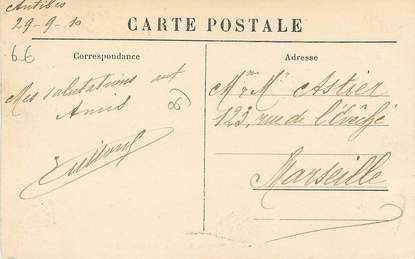 Antibes
29-9-10
CARTE POSTALE
Correspondance
Adresse
6-6
Mes salutations aux
Amis
Mme Mr Astier
123, rue de l'Évêché
Marseille